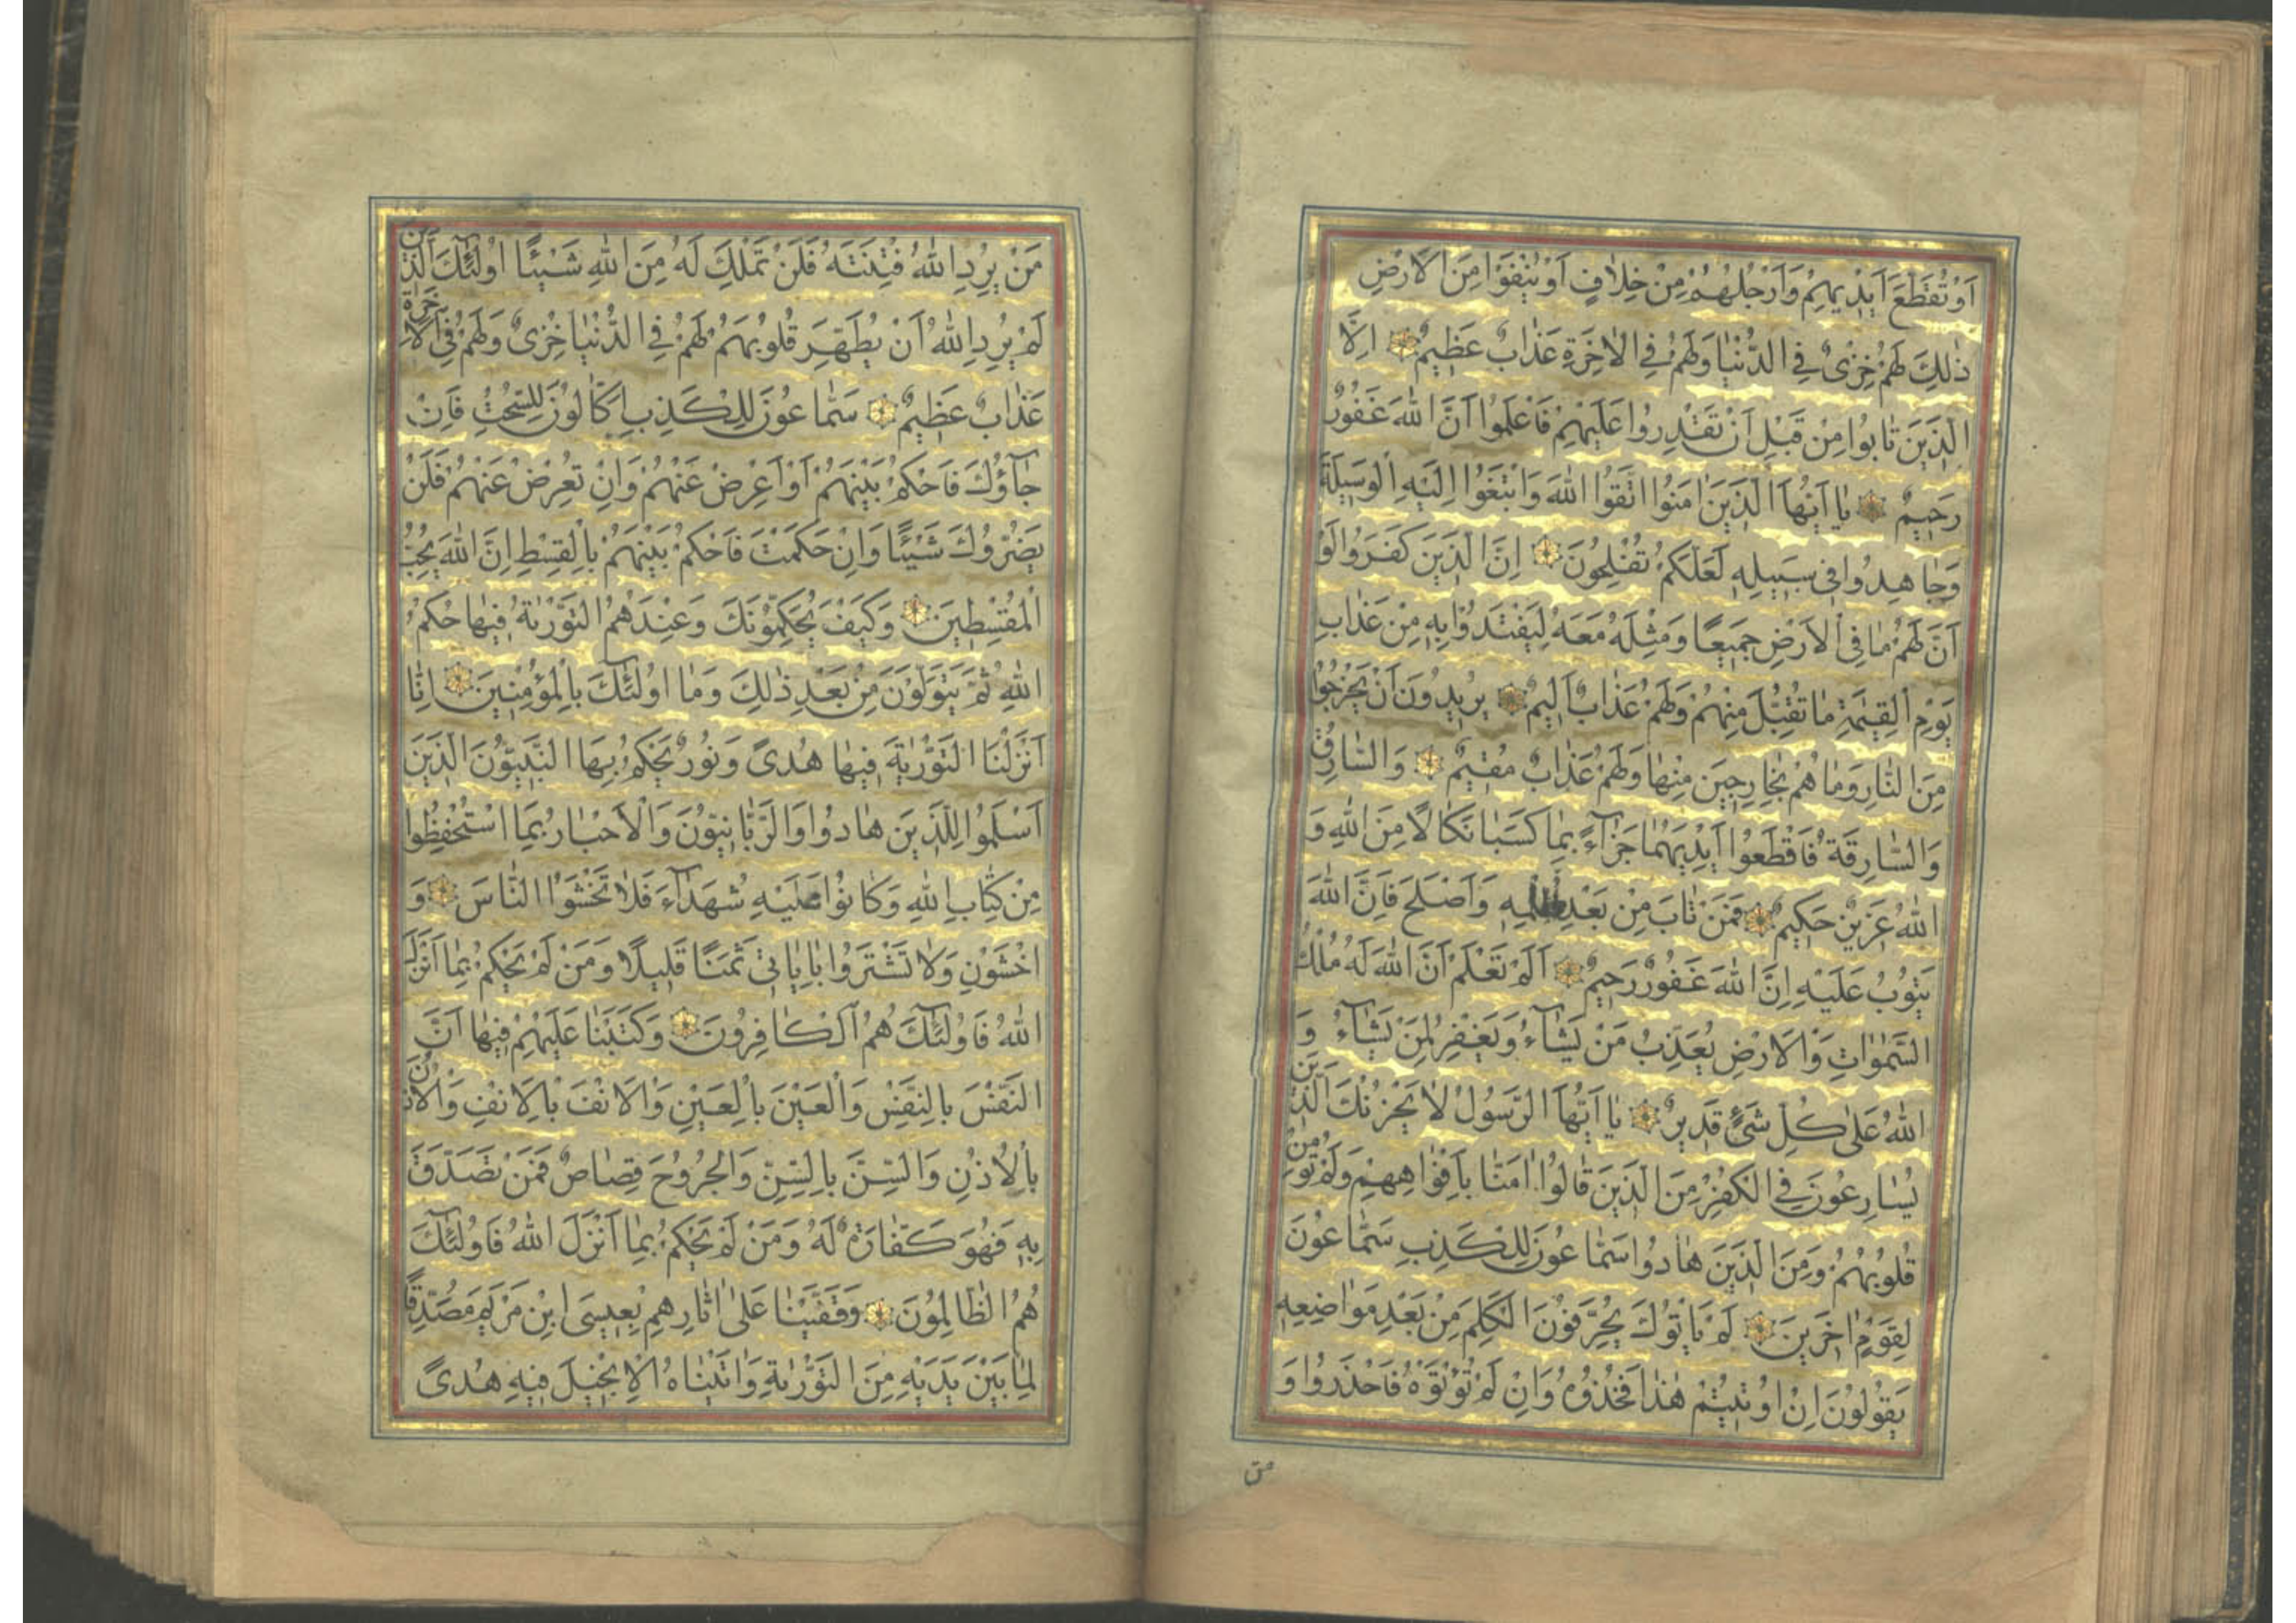 اَوْ تُقَطَّعَ اَيْدِيهِمْ وَاَرْجُلُهُمْ مِنْ خِلَافٍ اَوْ يُنْفَوْا مِنَ الْاَرْضِ
ذٰلِكَ لَهُمْ خِزْىٌ فِى الدُّنْيَا وَلَهُمْ فِى الْاٰخِرَةِ عَذَابٌ عَظِيمٌ اِلَّا
الَّذِينَ تَابُوا مِنْ قَبْلِ اَنْ تَقْدِرُوا عَلَيْهِمْ فَاعْلَمُوا اَنَّ اللّٰهَ غَفُورٌ
رَحِيمٌ يَا اَيُّهَا الَّذِينَ اٰمَنُوا اتَّقُوا اللّٰهَ وَابْتَغُوا اِلَيْهِ الْوَسِيلَةَ
وَجَاهِدُوا فِى سَبِيلِهِ لَعَلَّكُمْ تُفْلِحُونَ اِنَّ الَّذِينَ كَفَرُوا لَوْ
اَنَّ لَهُمْ مَا فِى الْاَرْضِ جَمِيعًا وَمِثْلَهُ مَعَهُ لِيَفْتَدُوا بِهِ مِنْ عَذَابِ
يَوْمِ الْقِيٰمَةِ مَا تُقُبِّلَ مِنْهُمْ وَلَهُمْ عَذَابٌ اَلِيمٌ يُرِيدُونَ اَنْ يَخْرُجُوا
مِنَ النَّارِ وَمَا هُمْ بِخَارِجِينَ مِنْهَا وَلَهُمْ عَذَابٌ مُقِيمٌ وَالسَّارِقُ
وَالسَّارِقَةُ فَاقْطَعُوا اَيْدِيَهُمَا جَزَآءً بِمَا كَسَبَا نَكَالًا مِنَ اللّٰهِ وَ
اللّٰهُ عَزِيزٌ حَكِيمٌ فَمَنْ تَابَ مِنْ بَعْدِ ظُلْمِهِ وَاَصْلَحَ فَاِنَّ اللّٰهَ
يَتُوبُ عَلَيْهِ اِنَّ اللّٰهَ غَفُورٌ رَحِيمٌ اَلَمْ تَعْلَمْ اَنَّ اللّٰهَ لَهُ مُلْكُ
السَّمٰوَاتِ وَالْاَرْضِ يُعَذِّبُ مَنْ يَشَآءُ وَيَغْفِرُ لِمَنْ يَشَآءُ وَ
اللّٰهُ عَلٰى كُلِّ شَىْءٍ قَدِيرٌ يَا اَيُّهَا الرَّسُولُ لَا يَحْزُنْكَ الَّذِينَ
يُسَارِعُونَ فِى الْكُفْرِ مِنَ الَّذِينَ قَالُوا اٰمَنَّا بِاَفْوَاهِهِمْ وَلَمْ تُؤْمِنْ
قُلُوبُهُمْ وَمِنَ الَّذِينَ هَادُوا سَمَّاعُونَ لِلْكَذِبِ سَمَّاعُونَ
لِقَوْمٍ اٰخَرِينَ لَمْ يَاْتُوكَ يُحَرِّفُونَ الْكَلِمَ مِنْ بَعْدِ مَوَاضِعِهِ
يَقُولُونَ اِنْ اُوتِيتُمْ هٰذَا فَخُذُوهُ وَاِنْ لَمْ تُؤْتَوْهُ فَاحْذَرُوا وَ
من
مَنْ يُرِدِ اللّٰهُ فِتْنَتَهُ فَلَنْ تَمْلِكَ لَهُ مِنَ اللّٰهِ شَيْئًا اُولٰئِكَ الَّذِينَ
لَمْ يُرِدِ اللّٰهُ اَنْ يُطَهِّرَ قُلُوبَهُمْ لَهُمْ فِى الدُّنْيَا خِزْىٌ وَلَهُمْ فِى الْاٰخِرَةِ
عَذَابٌ عَظِيمٌ سَمَّاعُونَ لِلْكَذِبِ اَكَّالُونَ لِلسُّحْتِ فَاِنْ
جَآؤُكَ فَاحْكُمْ بَيْنَهُمْ اَوْ اَعْرِضْ عَنْهُمْ وَاِنْ تُعْرِضْ عَنْهُمْ فَلَنْ
يَضُرُّوكَ شَيْئًا وَاِنْ حَكَمْتَ فَاحْكُمْ بَيْنَهُمْ بِالْقِسْطِ اِنَّ اللّٰهَ يُحِبُّ
الْمُقْسِطِينَ وَكَيْفَ يُحَكِّمُونَكَ وَعِنْدَهُمُ التَّوْرٰيةُ فِيهَا حُكْمُ
اللّٰهِ ثُمَّ يَتَوَلَّوْنَ مِنْ بَعْدِ ذٰلِكَ وَمَا اُولٰئِكَ بِالْمُؤْمِنِينَ اِنَّا
اَنْزَلْنَا التَّوْرٰيةَ فِيهَا هُدًى وَنُورٌ يَحْكُمُ بِهَا النَّبِيُّونَ الَّذِينَ
اَسْلَمُوا لِلَّذِينَ هَادُوا وَالرَّبَّانِيُّونَ وَالْاَحْبَارُ بِمَا اسْتُحْفِظُوا
مِنْ كِتَابِ اللّٰهِ وَكَانُوا عَلَيْهِ شُهَدَآءَ فَلَا تَخْشَوُا النَّاسَ وَ
اخْشَوْنِ وَلَا تَشْتَرُوا بِاٰيَاتِى ثَمَنًا قَلِيلًا وَمَنْ لَمْ يَحْكُمْ بِمَا اَنْزَلَ
اللّٰهُ فَاُولٰئِكَ هُمُ الْكَافِرُونَ وَكَتَبْنَا عَلَيْهِمْ فِيهَا اَنَّ
النَّفْسَ بِالنَّفْسِ وَالْعَيْنَ بِالْعَيْنِ وَالْاَنْفَ بِالْاَنْفِ وَالْاُذُنَ
بِالْاُذُنِ وَالسِّنَّ بِالسِّنِّ وَالْجُرُوحَ قِصَاصٌ فَمَنْ تَصَدَّقَ
بِهِ فَهُوَ كَفَّارَةٌ لَهُ وَمَنْ لَمْ يَحْكُمْ بِمَا اَنْزَلَ اللّٰهُ فَاُولٰئِكَ
هُمُ الظَّالِمُونَ وَقَفَّيْنَا عَلٰى اٰثَارِهِمْ بِعِيسَى ابْنِ مَرْيَمَ مُصَدِّقًا
لِمَا بَيْنَ يَدَيْهِ مِنَ التَّوْرٰيةِ وَاٰتَيْنَاهُ الْاِنْجِيلَ فِيهِ هُدًى